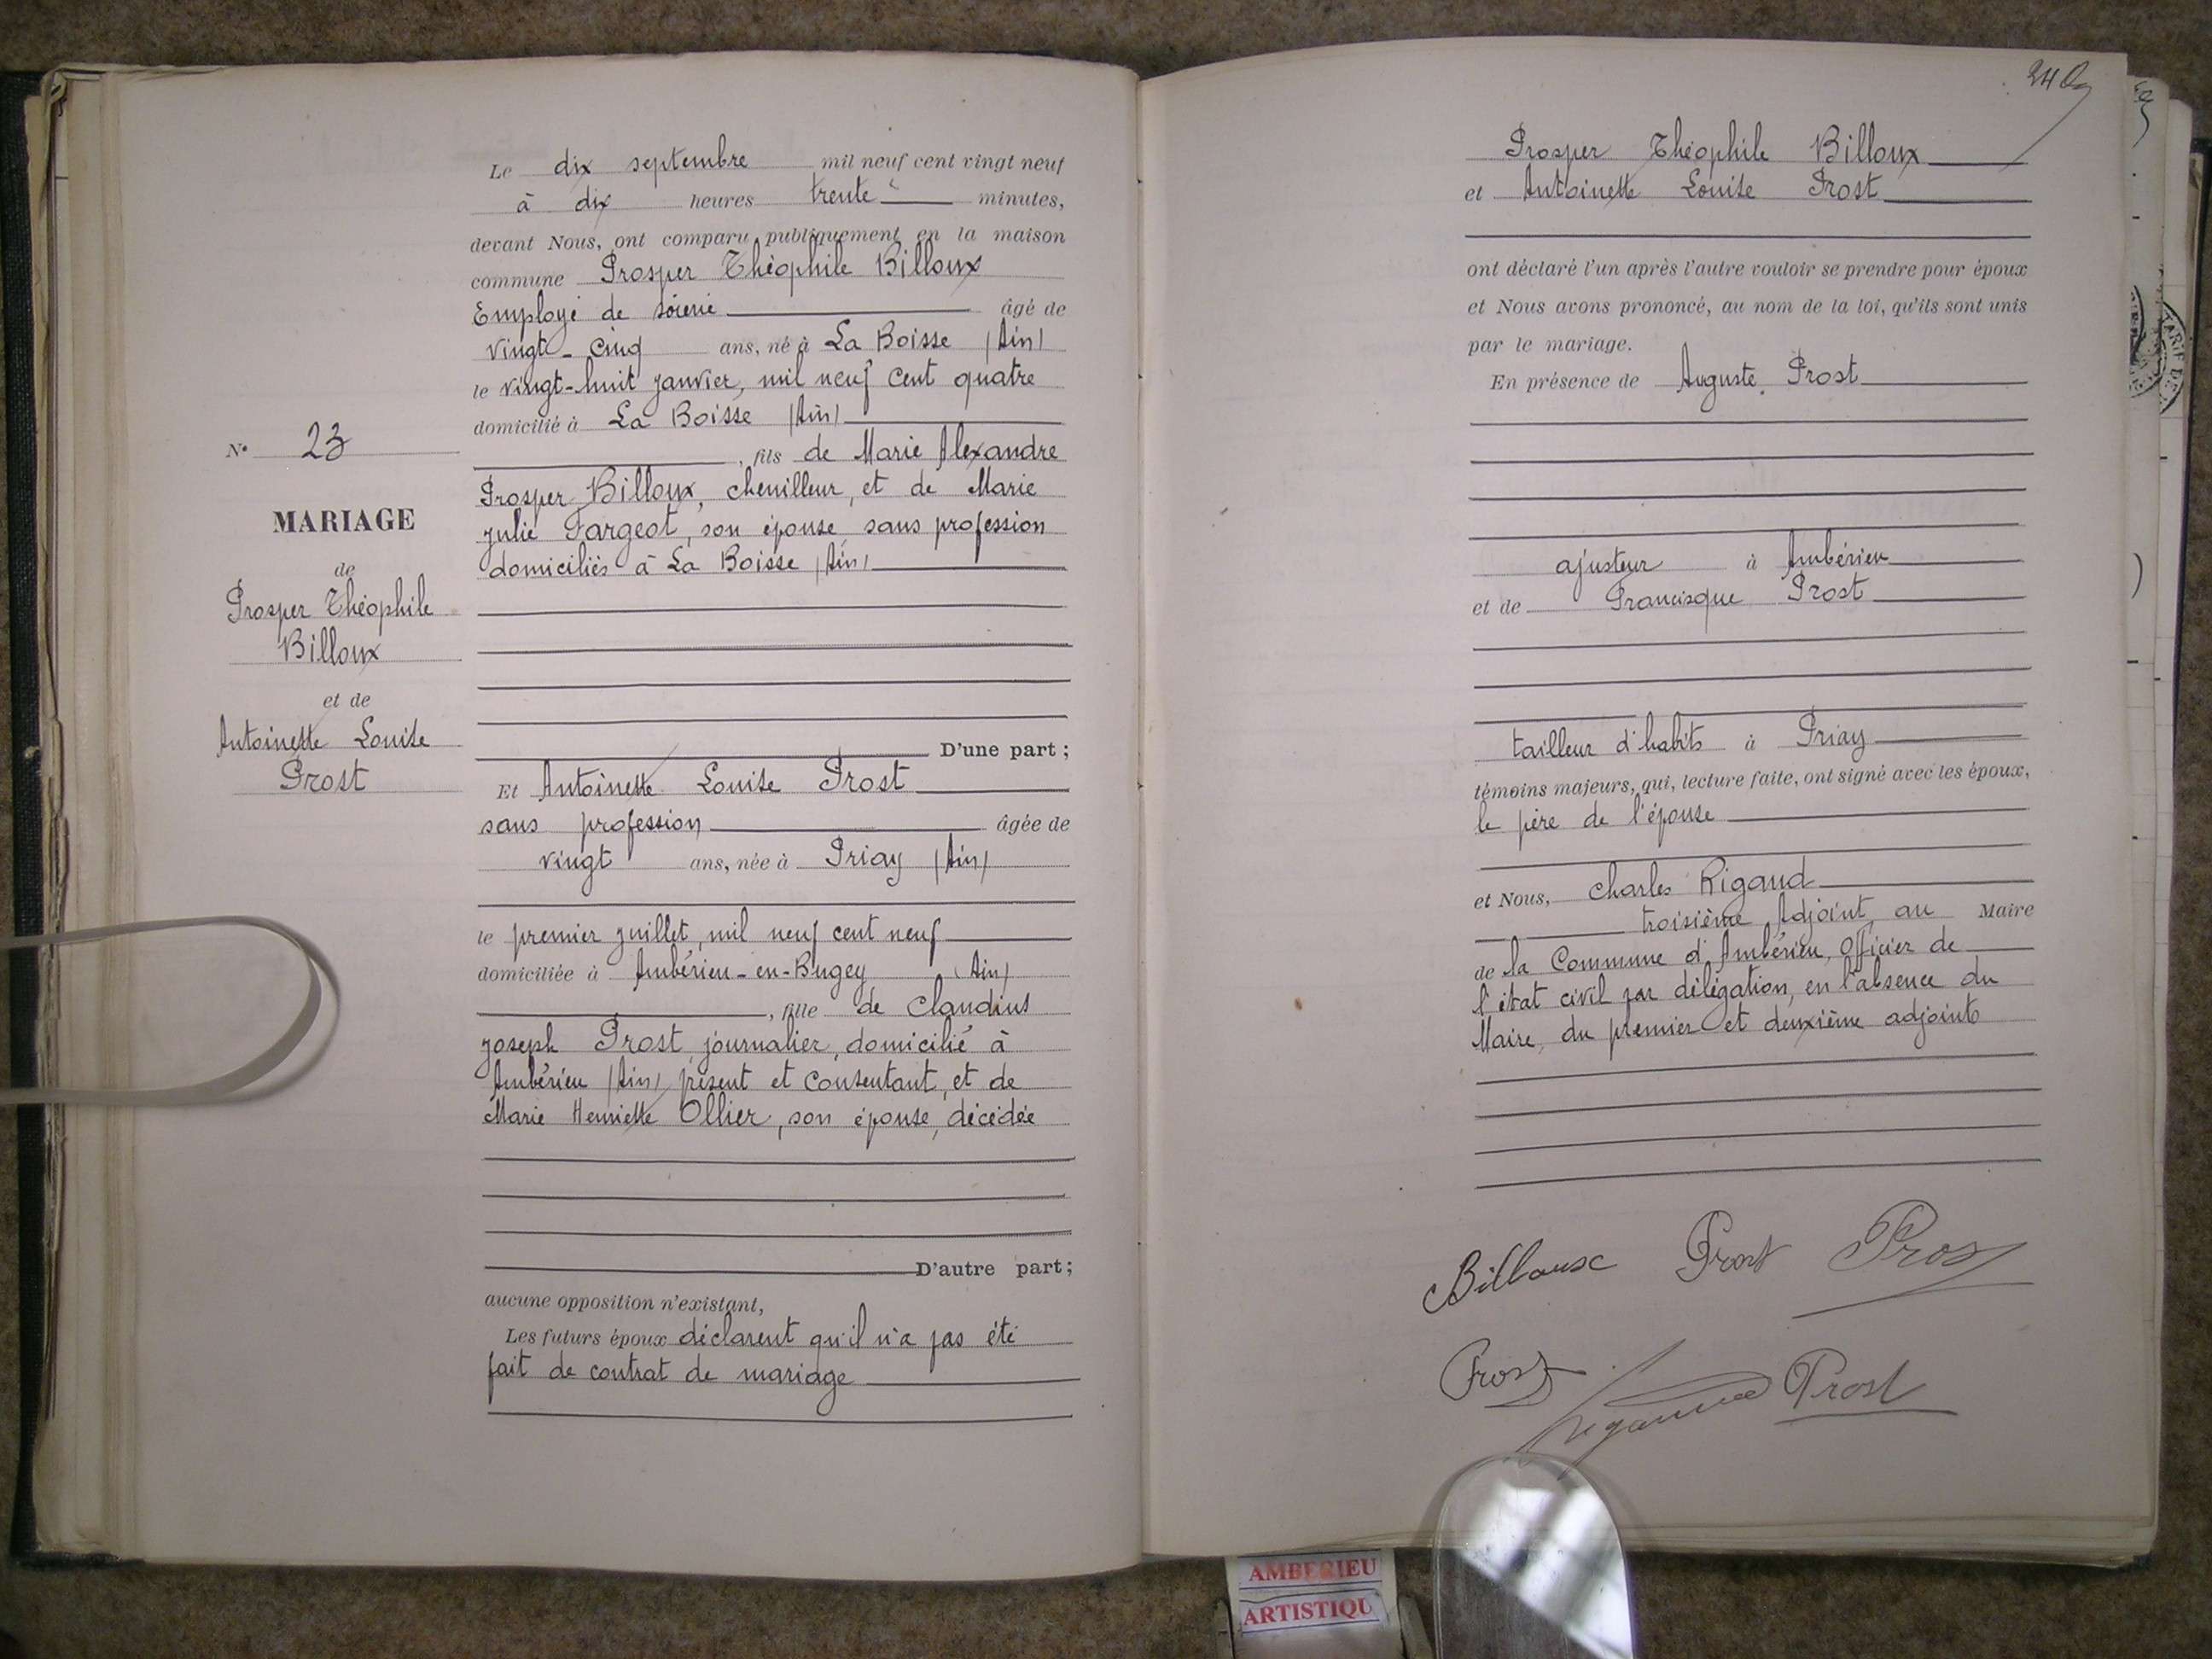 N° 23
MARIAGE
de
Prosper Théophile
Billoux
et de
Antoinette Louise
Prost
Le dix septembre mil neuf cent vingt neuf
à dix heures trente minutes,
devant Nous, ont comparu publiquement en la maison
commune Prosper Théophile Billoux
Employé de soierie âgé de
vingt-cinq ans, né à La Boisse (Ain)
le vingt-huit janvier, mil neuf cent quatre
domicilié à La Boisse (Ain)
, fils de Marie Alexandre
Prosper Billoux, chenilleur, et de Marie
Julie Fargeot, son épouse, sans profession
domiciliés à La Boisse (Ain)
D'une part ;
Et Antoinette Louise Prost
sans profession âgée de
vingt ans, née à Priay (Ain)
le premier juillet, mil neuf cent neuf
domiciliée à Ambérieu-en-Bugey (Ain)
, fille de Claudius
Joseph Prost, journalier, domicilié à
Ambérieu (Ain) présent et consentant, et de
Marie Henriette Ollier, son épouse, décédée
D'autre part ;
aucune opposition n'existant,
Les futurs époux déclarent qu'il n'a pas été
fait de contrat de mariage
24
Prosper Théophile Billoux
et Antoinette Louise Prost
ont déclaré l'un après l'autre vouloir se prendre pour époux
et Nous avons prononcé, au nom de la loi, qu'ils sont unis
par le mariage.
En présence de Auguste Prost
ajusteur à Ambérieu
et de Francisque Prost
tailleur d'habits à Priay
témoins majeurs, qui, lecture faite, ont signé avec les époux,
le père de l'épouse
et Nous, Charles Rigaud
troisième Adjoint au Maire
de la Commune d'Ambérieu, Officier de
l'état civil par délégation, en l'absence du
Maire, du premier et deuxième adjoints
Billoux Prost Prost
Prost
Prost
AMBERIEU
ARTISTIQU